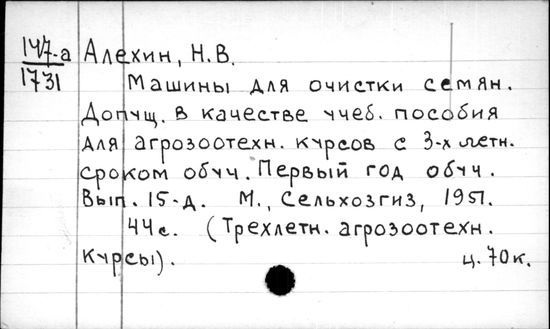 147-а Алехин, Н.В.
1731 Машины для очистки семян.
Допущ. в качестве учеб. пособия
для агрозоотехн. курсов с 3-х летн.
сроком обуч. Первый год обуч.
Вып. 15-д. М., Сельхозгиз, 1951.
44с. (Трехлетн. агрозоотехн.
курсы). ц. 70к.